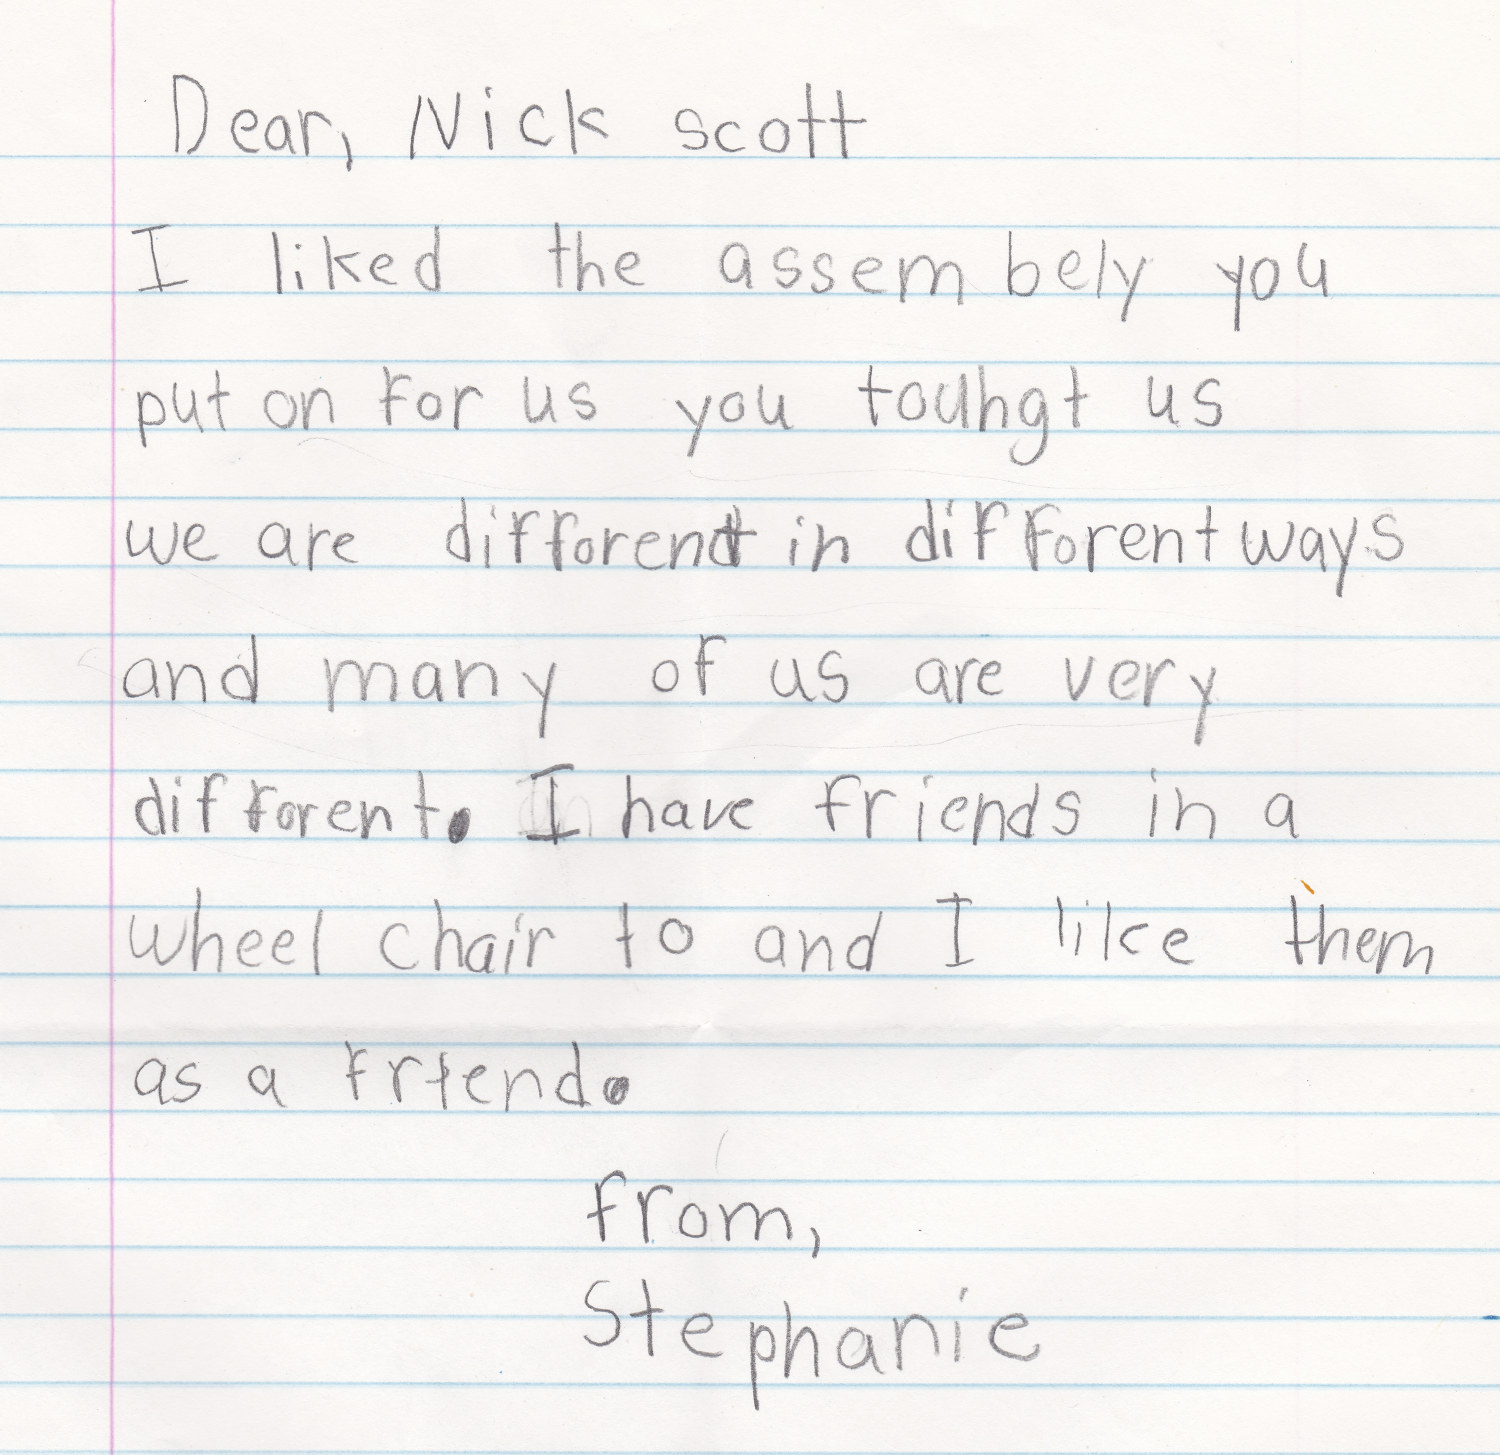 Dear, Nick scott
I liked the assembely you
put on for us you touhgt us
we are differend in difforent ways
and many of us are very
difforent. I have friends in a
wheel chair to and I like them
as a friend.
from,
Stephanie